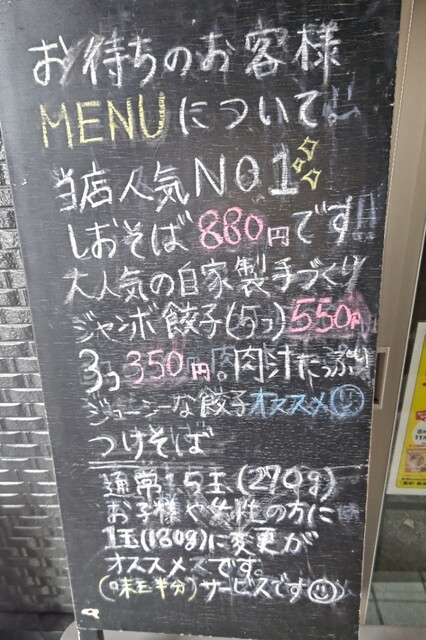 お待ちのお客様
MENUについて
当店人気NO1
しおそば880円です!!
大人気の自家製手づくり
ジャンボ餃子(5コ)550円
3コ350円。肉汁たっぷり
ジューシーな餃子オススメ
つけそば
通常1.5玉(270g)
お子様や女性の方に
1玉(180g)に変更が
オススメです。
(味玉半分)サービスです